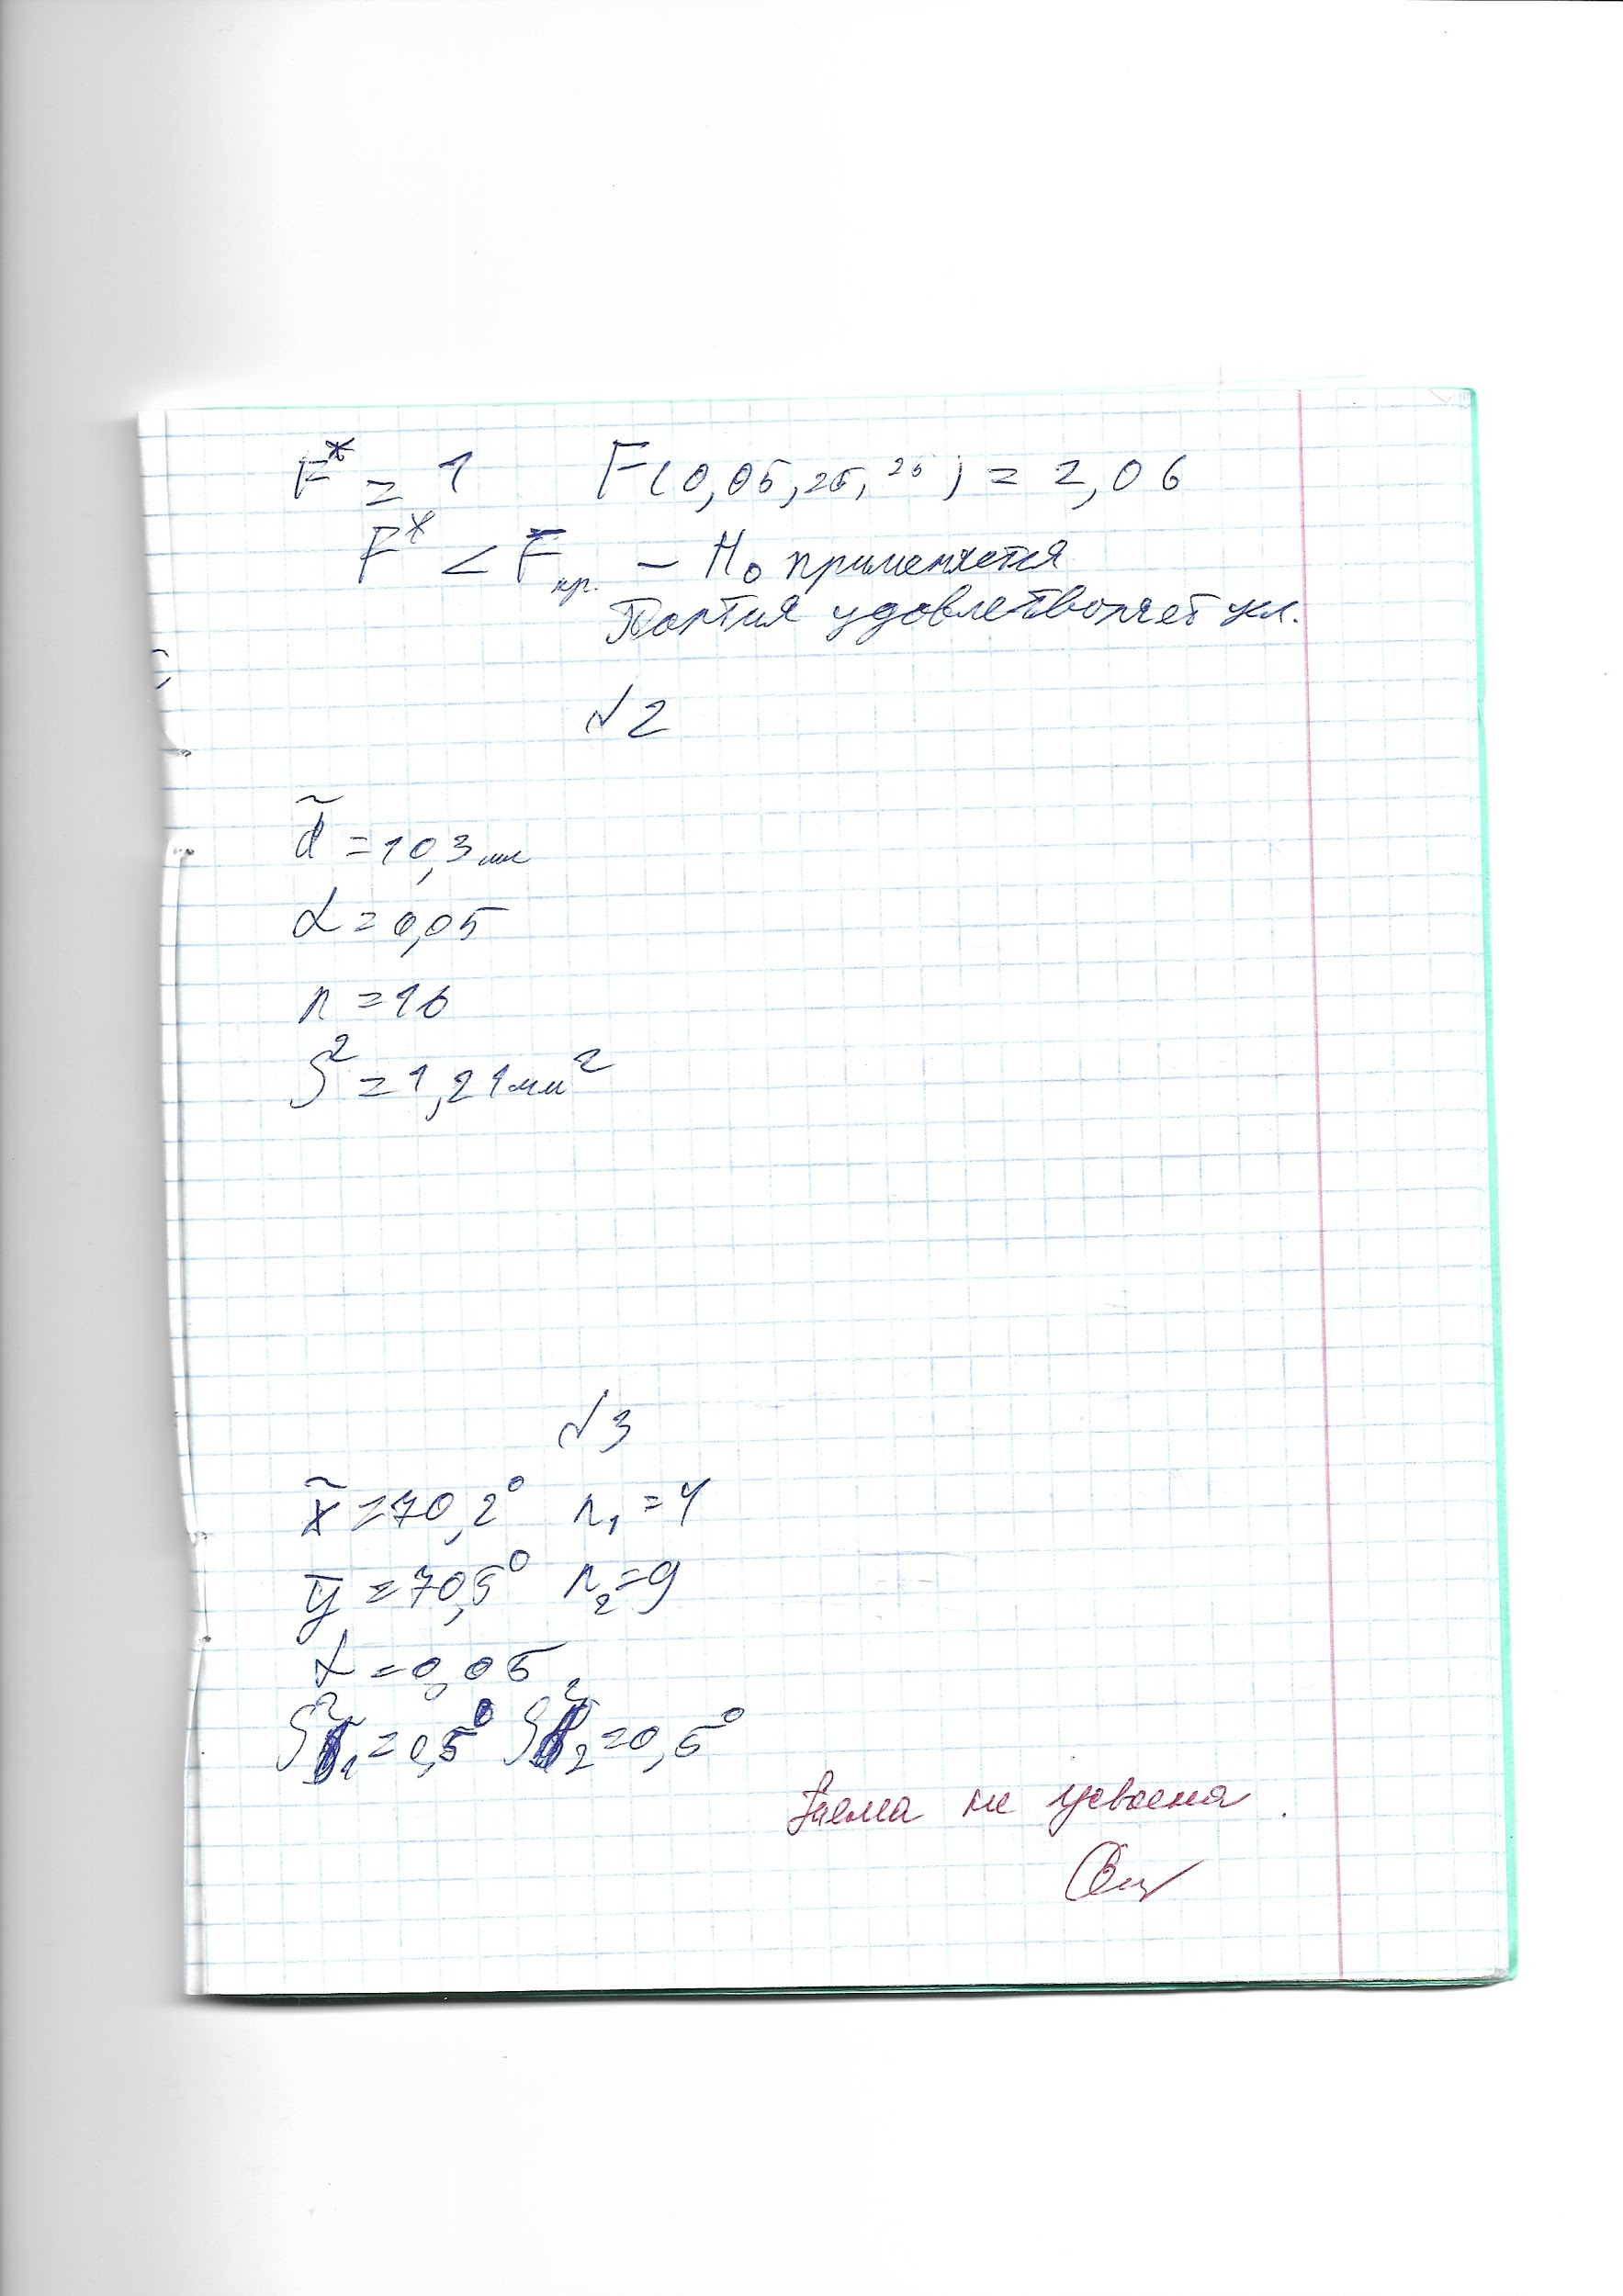 F* = 1 F(0,05, 25, 25) = 2,06
F* < Fкр. – H₀ применяется
Партия удовлетворяет усл.
№2
d̃ = 10,3 мм
α = 0,05
n = 16
S² = 1,21 мм²
№3
x̃ = 70,2° n₁ = 4
ȳ = 70,5° n₂ = 9
α = 0,05
S²₁ = 0,5° S²₂ = 0,5°
Тема не усвоена.